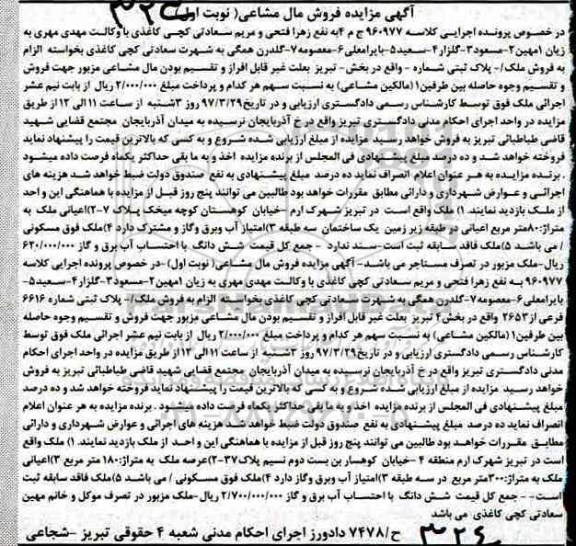 آگهی مزایده فروش مال مشاعی( نوبت اول)
در خصوص پرونده اجرایی کلاسه ۹۶۰۹۷۷ ج م ۴به نفع زهرا فتحی و مریم سعادتی کچی کاغذی با وکالت مهدی مهری به
زیان ۱مهین۲-مسعود۳-گلزار۴-سعید۵-بایرامعلی۶-معصومه۷-گلدرن همگی به شهرت سعادتی کچی کاغذی بخواسته الزام
به فروش ملک/- پلاک ثبتی شماره - واقع در بخش- تبریز بعلت غیر قابل افراز و تقسیم بودن مال مشاعی مزبور جهت فروش
و تقسیم وجوه حاصله بین طرفین۱ (مالکین مشاعی) به نسبت سهم هر کدام و پرداخت مبلغ ۲/۰۰۰/۰۰۰ ریال از بابت نیم عشر
اجرائی ملک فوق توسط کارشناس رسمی دادگستری ارزیابی و در تاریخ۹۷/۳/۲۹ روز ۳شنبه از ساعت ۱۱الی ۱۲ از طریق
مزایده در واحد اجرای احکام مدنی دادگستری تبریز واقع در خ آذربایجان نرسیده به میدان آذربایجان مجتمع قضایی شهید
قاضی طباطبائی تبریز به فروش خواهد رسید مزایده از مبلغ ارزیابی شده شروع و به کسی که بالاترین قیمت را پیشنهاد نماید
فروخته خواهد شد و ده درصد مبلغ پیشنهادی فی المجلس از برنده مزایده اخذ و به ما بقی حداکثر یکماه فرصت داده میشود
. برنده مزایده به هر عنوان اعلام انصراف نماید ده درصد مبلغ پیشنهادی به نفع صندوق دولت ضبط خواهد شد هزینه های
اجرائی و عوارض شهرداری و دارائی مطابق مقررات خواهد بود طالبین می توانند پنج روز قبل از مزایده با هماهنگی این و احد
از ملک بازدید نمایند. ۱) ملک واقع است در تبریز شهرک ارم -خیابان کوهستان کوچه میخک پلاک ۷-۲)اعیانی ملک به
متراژ:۸۰متر مربع اعیانی در طبقه زیر زمین یک ساختمان سه طبقه ۳)امتیاز آب وبرق وگاز و مشترک دارد ۴)ملک فوق مسکونی
/ می باشد ۵)ملک فاقد سابقه ثبت است-سند ندارد - جمع کل قیمت شش دانگ با احتساب آب برق و گاز ۶۲۰/۰۰۰/۰۰۰
ریال-ملک مزبور در تصرف مستاجر می باشد- آگهی مزایده فروش مال مشاعی( نوبت اول)-در خصوص پرونده اجرایی کلاسه
۹۶۰۹۷۷ به نفع زهرا فتحی و مریم سعادتی کچی کاغذی با وکالت مهدی مهری به زیان ۱مهین۲-مسعود۳-گلزار۴-سعید۵-
بایرامعلی۶-معصومه۷-گلدرن همگی به شهرت سعادتی کچی کاغذی بخواسته الزام به فروش ملک/- پلاک ثبتی شماره ۶۶۱۶
فرعی از ۲۶۵۳ واقع در بخش۴ تبریز بعلت غیر قابل افراز و تقسیم بودن مال مشاعی مزبور جهت فروش و تقسیم وجوه حاصله
بین طرفین۱ (مالکین مشاعی) به نسبت سهم هر کدام و پرداخت مبلغ ۲/۰۰۰/۰۰۰ ریال از بابت نیم عشر اجرائی ملک فوق توسط
کارشناس رسمی دادگستری ارزیابی و در تاریخ۹۷/۳/۲۹ روز ۳شنبه از ساعت ۱۱الی ۱۲از طریق مزایده در واحد اجرای احکام
مدنی دادگستری تبریز واقع در خ آذربایجان نرسیده به میدان آذربایجان مجتمع قضایی شهید قاضی طباطبائی تبریز به فروش
خواهد رسید مزایده از مبلغ ارزیابی شده شروع و به کسی که بالاترین قیمت را پیشنهاد نماید فروخته خواهد شد و ده درصد
مبلغ پیشنهادی فی المجلس از برنده مزایده اخذ و به ما بقی حداکثر یکماه فرصت داده میشود . برنده مزایده به هر عنوان اعلام
انصراف نماید ده درصد مبلغ پیشنهادی به نفع صندوق دولت ضبط خواهد شد هزینه های اجرائی و عوارض شهرداری و دارائی
مطابق مقررات خواهد بود طالبین می توانند پنج روز قبل از مزایده با هماهنگی این و احد از ملک بازدید نمایند. ۱) ملک واقع
است در تبریز شهرک ارم منطقه ۴ -خیابان کوهسار بن بست دوم نسیم پلاک۳۷-۲)عرصه ملک به متراژ:۱۸۰ متر مربع ۳)اعیانی
ملک به متراژ:۳۰۰متر مربع در سه طبقه ۳)امتیاز آب وبرق وگاز دارد ۴)ملک فوق مسکونی / می باشد ۵)ملک فاقد سابقه ثبت
است- - جمع کل قیمت شش دانگ با احتساب آب برق و گاز ۲/۷۰۰/۰۰۰/۰۰۰ ریال-ملک مزبور در تصرف موکل و خانم مهین
سعادتی کچی کاغذی می باشد
ح/۷۴۷۸ دادورز اجرای احکام مدنی شعبه ۴ حقوقی تبریز -شجاعی